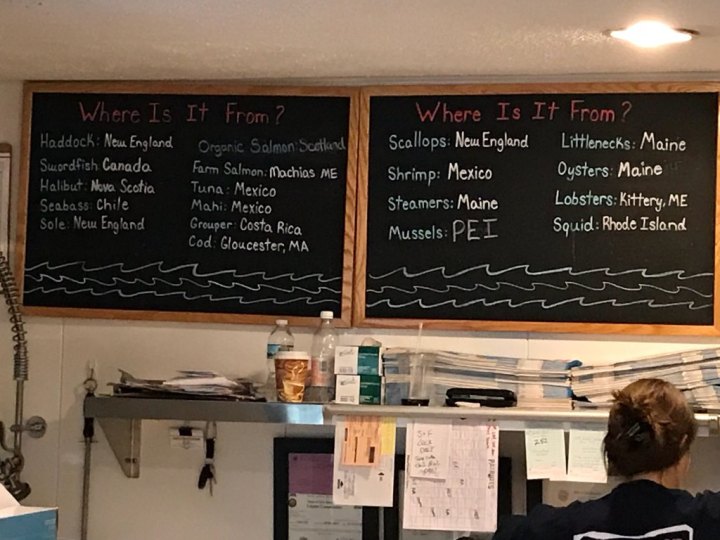 Where Is It From?
Haddock: New England
Swordfish Canada
Halibut: Nova Scotia
Seabass: Chile
Sole: New England
Organic Salmon: Scotland
Farm Salmon: Machias ME
Tuna: Mexico
Mahi: Mexico
Grouper: Costa Rica
Cod: Gloucester, MA
Where Is It From?
Scallops: New England
Shrimp: Mexico
Steamers: Maine
Mussels: PEI
Littlenecks: Maine
Oysters: Maine
Lobsters: Kittery, ME
Squid: Rhode Island